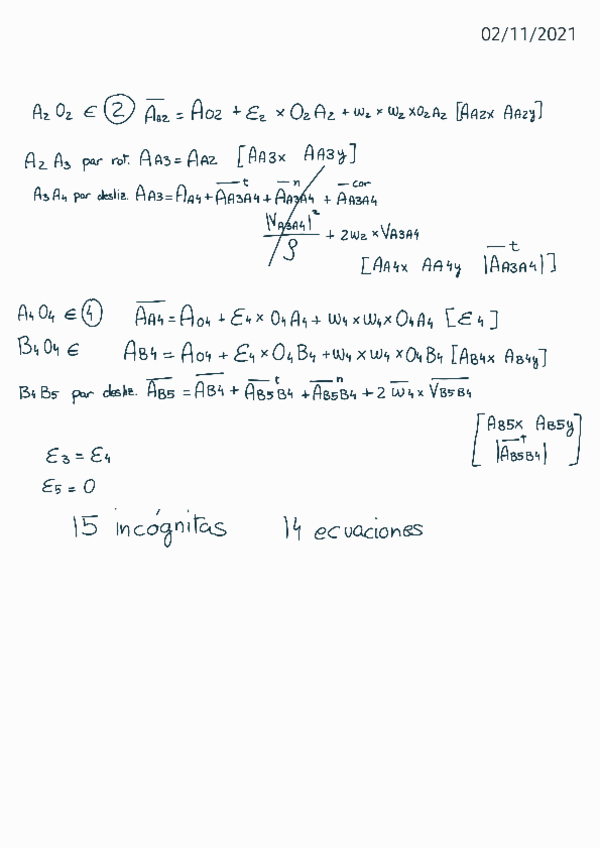 02/11/2021
A2 O2 ∈ ② A̅A2 = AO2 + ε2 × O2A2 + ω2 × ω2 × O2A2 [AA2x AA2y]
A2 A3 par rot. AA3 = AA2 [AA3x AA3y]
A3A4 par desliz. AA3 = AA4 + A̅A3A4^t + A̅A3A4^n + A̅A3A4^cor
|VA3A4|² / ρ + 2ω2 × VA3A4
[AA4x AA4y |A̅A3A4^t|]
A4O4 ∈ ④ A̅A4 = AO4 + ε4 × O4A4 + ω4 × ω4 × O4A4 [ε4]
B4O4 ∈ AB4 = AO4 + ε4 × O4B4 + ω4 × ω4 × O4B4 [AB4x AB4y]
B4B5 par desliz. A̅B5 = A̅B4 + A̅B5B4^t + A̅B5B4^n + 2 ω̅4 × V̅B5B4
[AB5x AB5y
|A̅B5B4^t|]
ε3 = ε4
ε5 = 0
15 incógnitas 14 ecuaciones